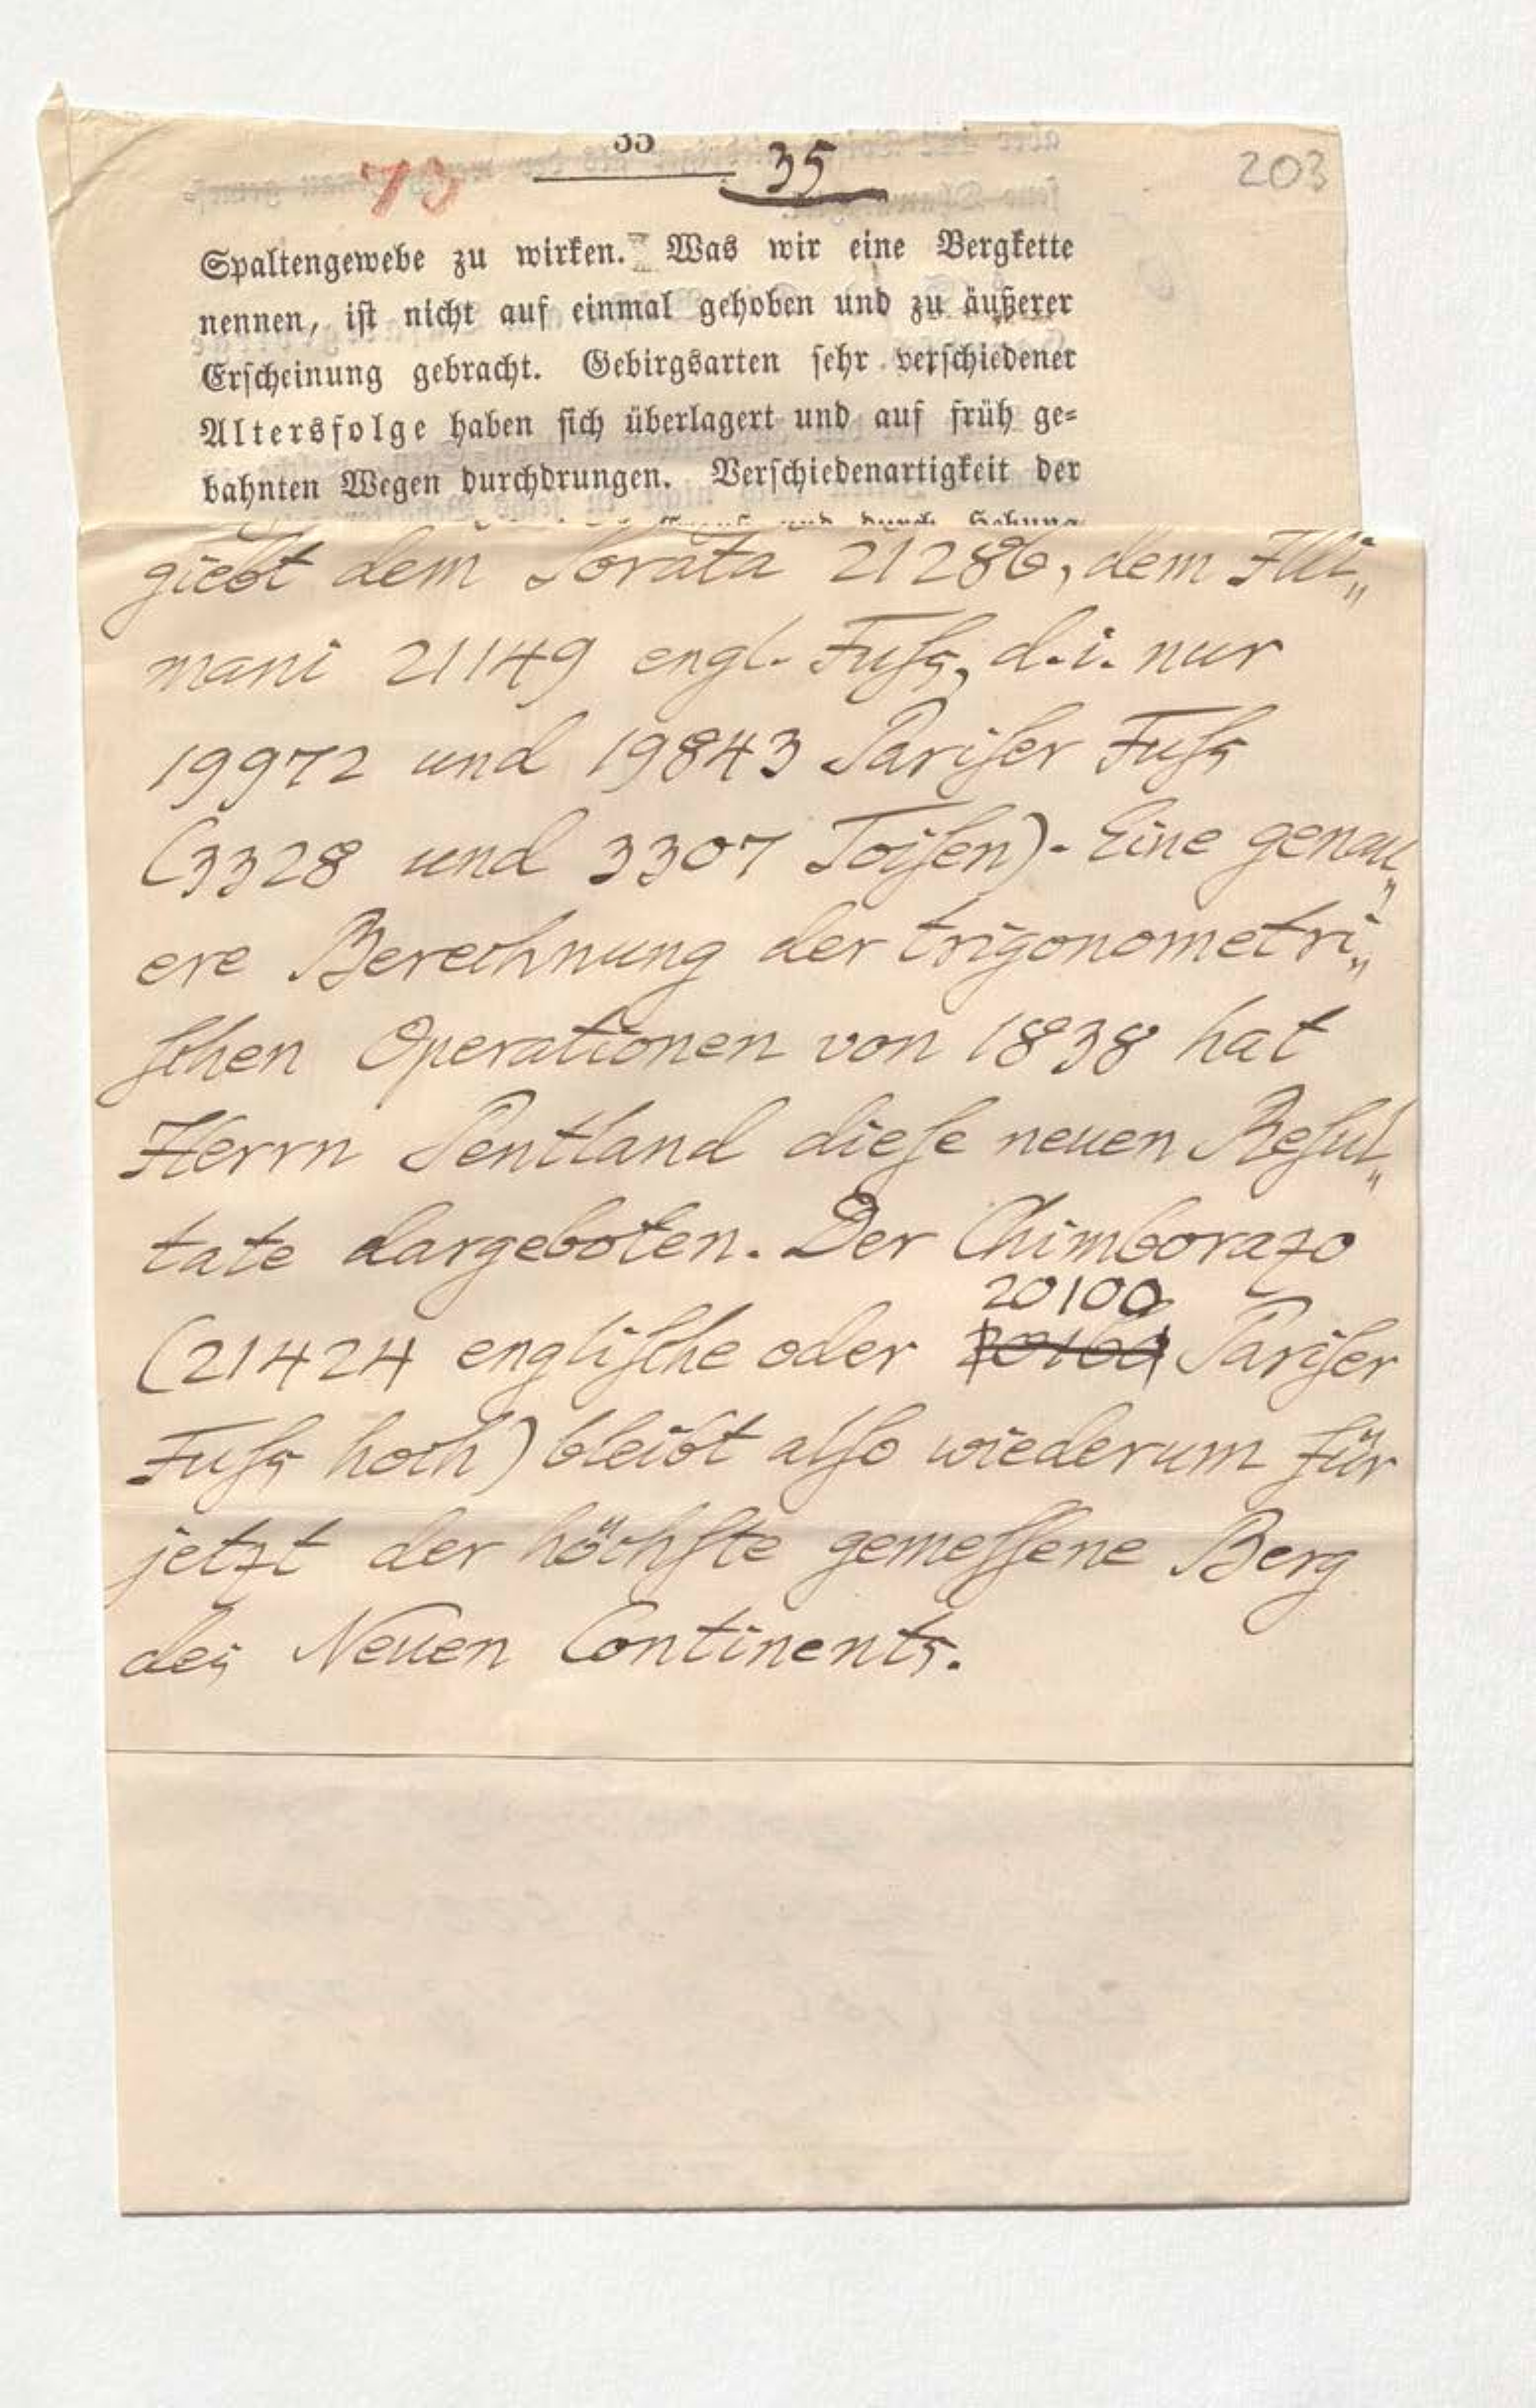 35
73
35
203
Spaltengewebe zu wirken. Was wir eine Bergkette
nennen, iſt nicht auf einmal gehoben und zu äußerer
Erſcheinung gebracht. Gebirgsarten ſehr verſchiedener
Altersfolge haben ſich überlagert und auf früh ge-
bahnten Wegen durchdrungen. Verſchiedenartigkeit der
und durch Hebung
giebt dem Sorata 21286, dem Illi„
mani 21149 engl. Fuſs, d.i. nur
19972 und 19843 Pariſer Fuſs
(3328 und 3307 Toiſen). Eine genau„
ere Berechnung der trigonometri„
ſchen Operationen von 1838 hat
Herrn Pentland dieſe neuen Reſul„
tate dargeboten. Der Chimborazo
20100
(21424 engliſche oder Pariſer
Fuſs hoch) bleibt alſo wiederum für
jetzt der höchſte gemeſſene Berg
des Neuen Continents.